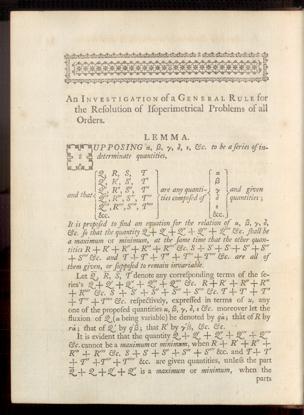 An INVESTIGATION of a GENERAL RULE for
the Resolution of Isoperimetrical Problems of all
Orders.
LEMMA.
SUPPOSING α, β, γ, δ, ε, &c. to be a series of in-
determinate quantities,
and that
Q, R, S, T
Q', R', S', T'
Q'', R'', S'', T''
Q''', R''', S''', T'''
&c.
are any quanti-
ties composed of
α
β
γ
δ
ε
&c.
and given
quantities;
It is proposed to find an equation for the relation of α, β, γ, δ,
&c. so that the quantity Q + Q' + Q'' + Q''' &c. shall be
a maximum or minimum, at the same time that the other quan-
tities R + R' + R'' + R''' &c. S + S' + S'' + S'''
&c. and T + T' + T'' + T''' &c. are all of
them given, or supposed to remain invariable.
Let Q, R, S, T denote any corresponding terms of the se-
ries's Q + Q' + Q'' + Q''' &c. R + R' + R'' + R'''
&c. S + S' + S'' + S''' &c. T + T' + T''
+ T''' &c. respectively, expressed in terms of α, any
one of the proposed quantities α, β, γ, δ, ε &c. moreover let the
fluxion of Q (α being variable) be denoted by qα̇; that of R by
rα̇; that of Q' by q'β̇; that R' by r'β̇, &c. &c.
It is evident that the quantity Q + Q' + Q'' + Q'''
&c. cannot be a maximum or minimum, when R + R' + R'' +
R''' &c. S + S' + S'' + S''' &c. and T + T'
+ T'' + T''' &c. are given quantities, unless the part
Q + Q' + Q'' is a maximum or minimum, when the
parts